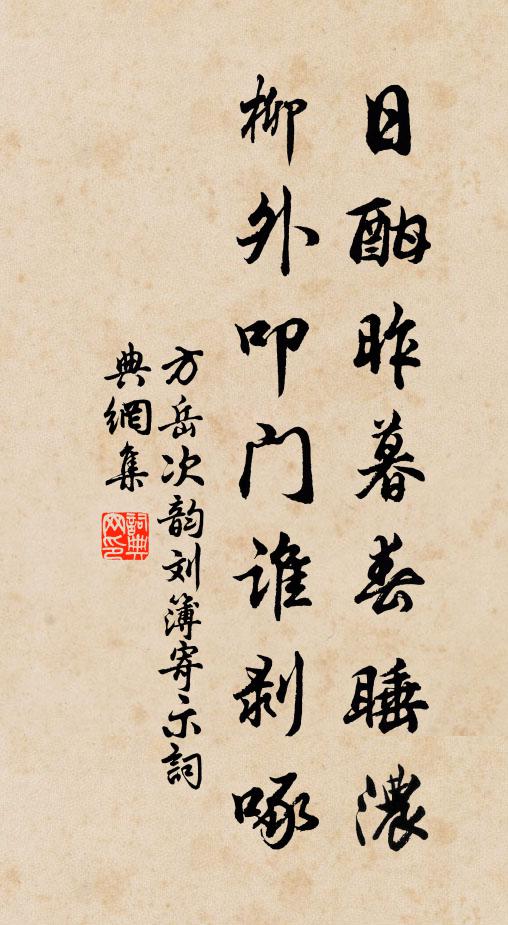 日酣昨暮春睡濃
柳外叩门谁剥啄
方岳次韵刘簿寄示詞
典網集
詞典网印